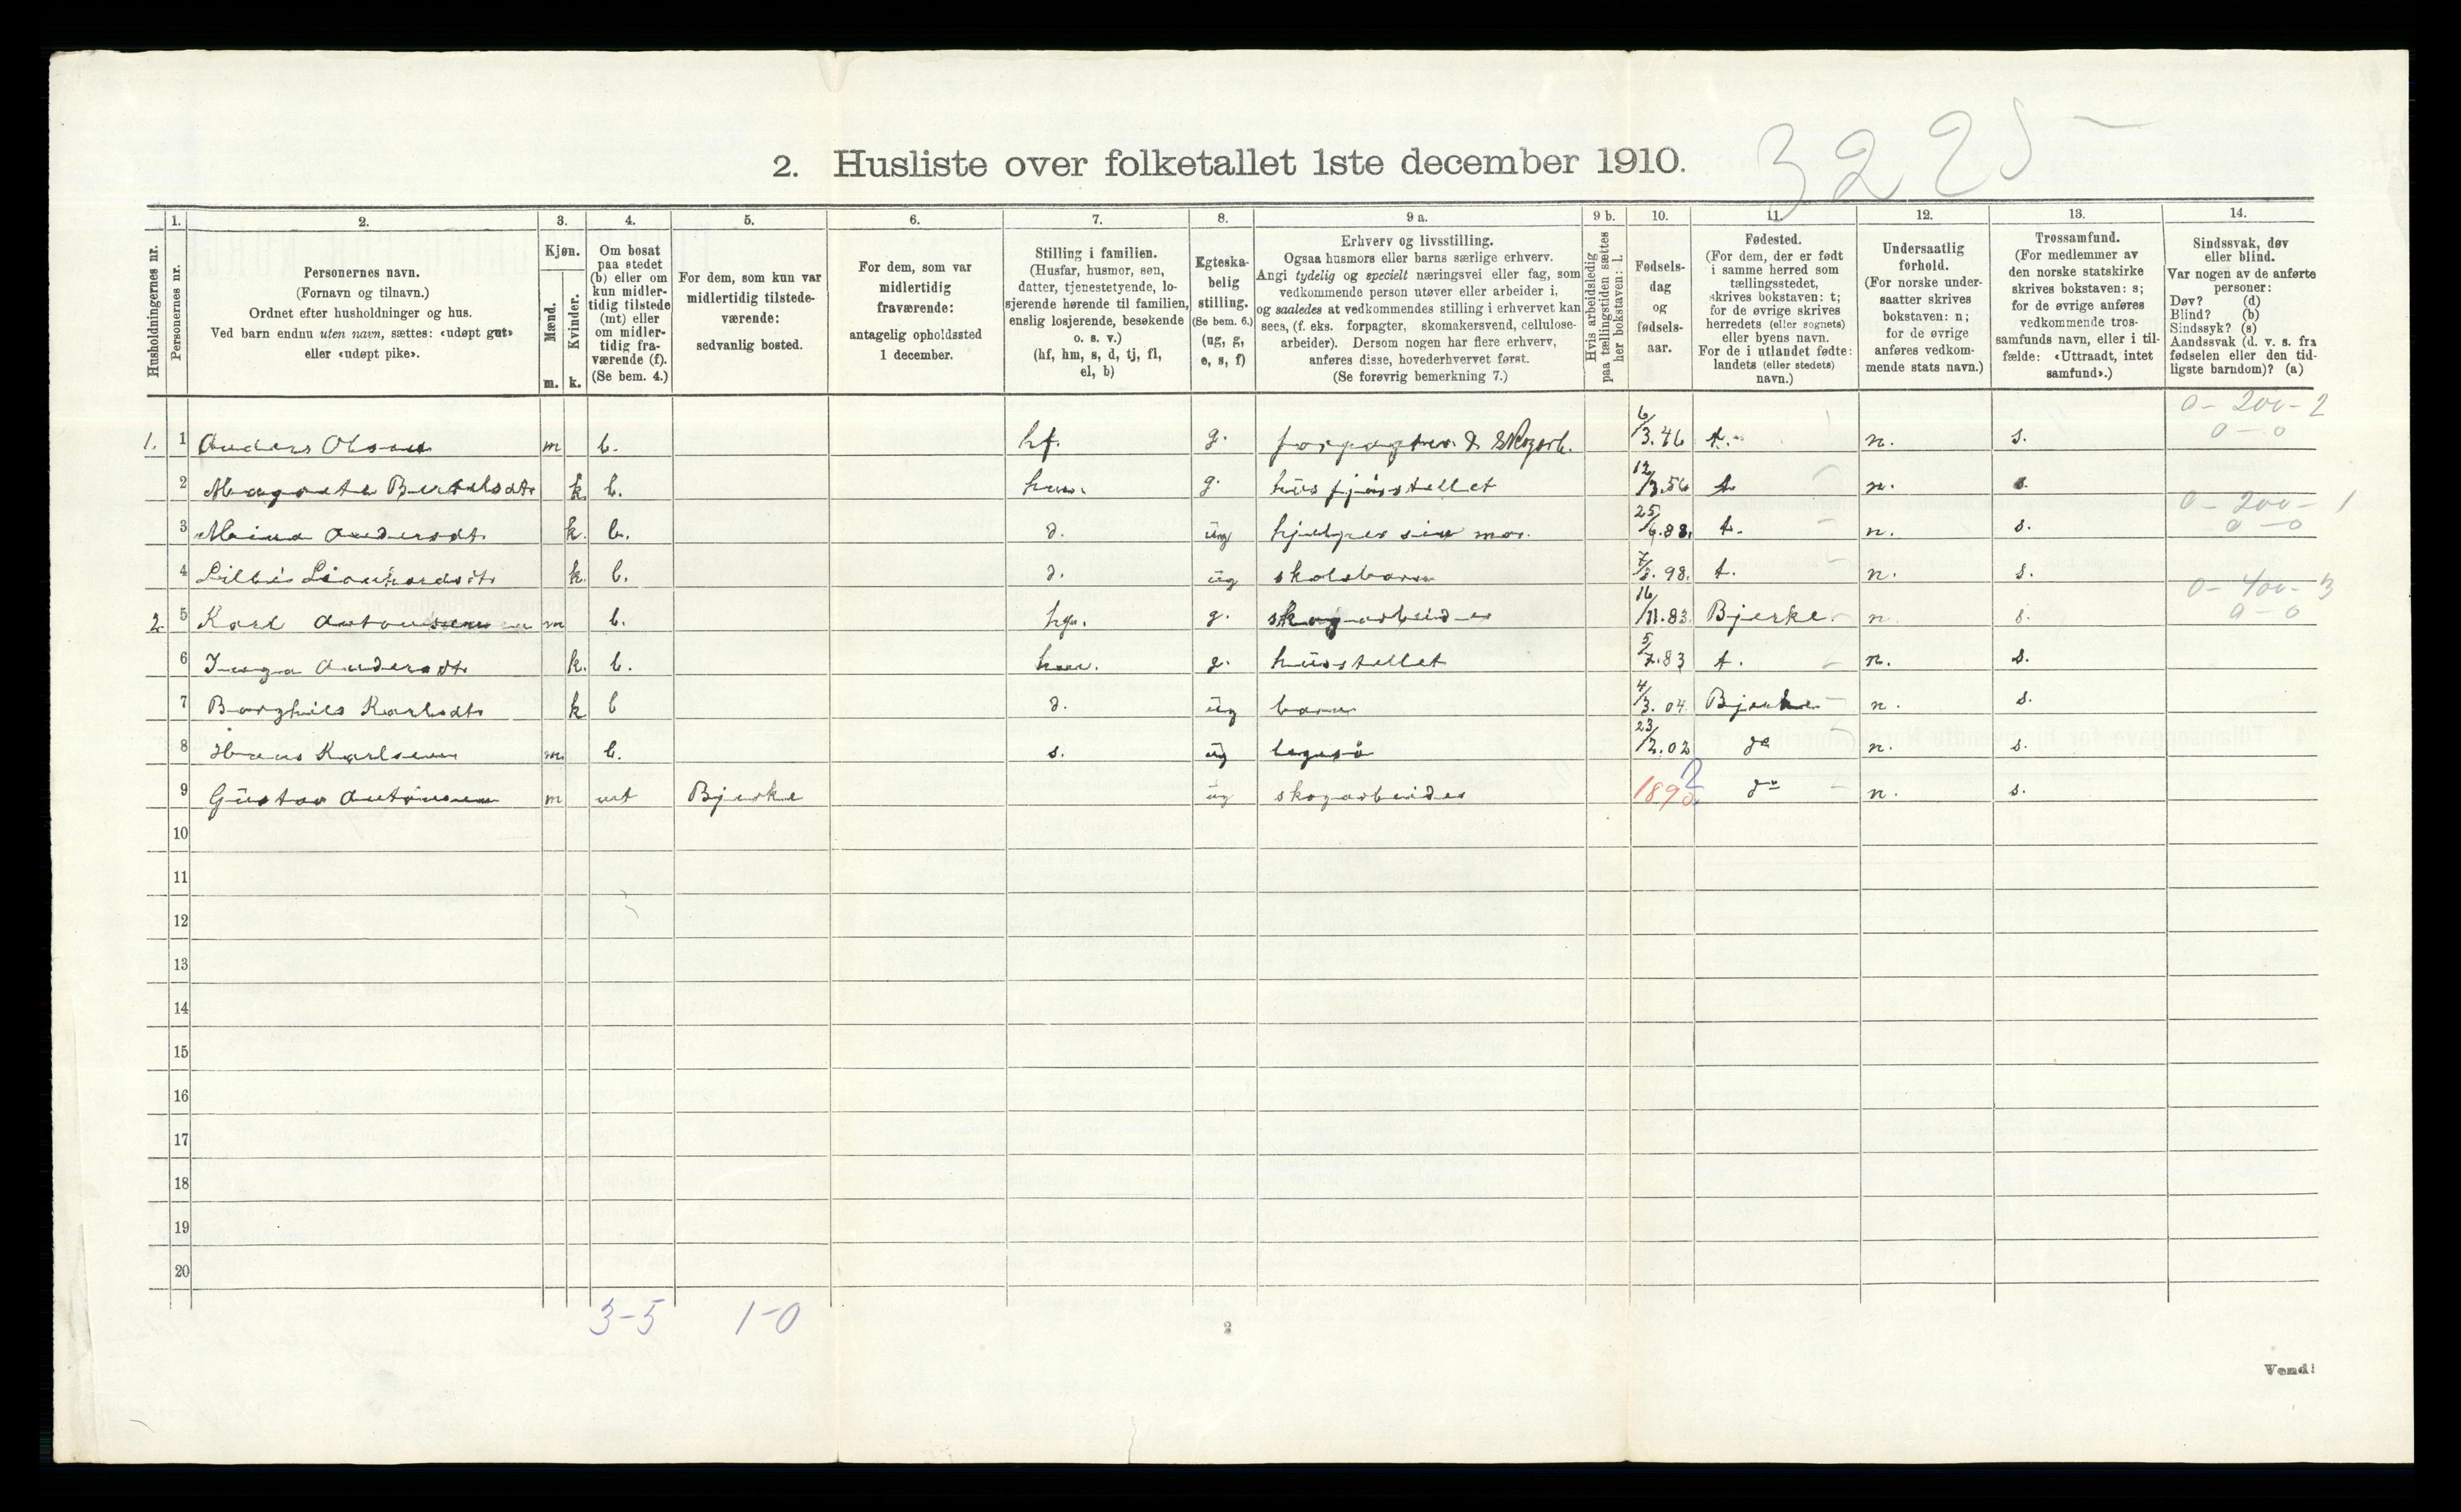 3225 –
2. Husliste over folketallet 1ste december 1910.
Husholdningernes nr.
1. Personernes nr.
2. Personernes navn.
(Fornavn og tilnavn.)
Ordnet efter husholdninger og hus.
Ved barn endnu uten navn, sættes: «udøpt gut»
eller «udøpt pike».
3. Kjøn.
Mænd. m.
Kvinder. k.
4. Om bosat
paa stedet
(b) eller om
kun midler-
tidig tilstede
(mt) eller
om midler-
tidig fra-
værende (f).
(Se bem. 4.)
5. For dem, som kun var
midlertidig tilstede-
værende:
sedvanlig bosted.
6. For dem, som var
midlertidig
fraværende:
antagelig opholdssted
1 december.
7. Stilling i familien.
(Husfar, husmor, søn,
datter, tjenestetyende, lo-
sjerende hørende til familien,
enslig losjerende, besøkende
o. s. v.)
(hf, hm, s, d, tj, fl,
el, b)
8. Egteska-
belig
stilling.
(Se bem. 6.)
(ug, g,
e, s, f)
9 a. Erhverv og livsstilling.
Ogsaa husmors eller barns særlige erhverv.
Angi tydelig og specielt næringsvei eller fag, som
vedkommende person utøver eller arbeider i,
og saaledes at vedkommendes stilling i erhvervet kan
sees, (f. eks. forpagter, skomakersvend, cellulose-
arbeider). Dersom nogen har flere erhverv,
anføres disse, hovederhvervet først.
(Se forøvrig bemerkning 7.)
9 b. Hvis arbeidsledig
paa tællingstiden sættes
her bokstaven: l.
10. Fødsels-
dag
og
fødsels-
aar.
11. Fødested.
(For dem, der er født
i samme herred som
tællingsstedet,
skrives bokstaven: t;
for de øvrige skrives
herredets (eller sognets)
eller byens navn.
For de i utlandet fødte:
landets (eller stedets)
navn.)
12. Undersaatlig
forhold.
(For norske under-
saatter skrives
bokstaven: n;
for de øvrige
anføres vedkom-
mende stats navn.)
13. Trossamfund.
(For medlemmer av
den norske statskirke
skrives bokstaven: s;
for de øvrige anføres
vedkommende tros-
samfunds navn, eller i til-
fælde: «Uttraadt, intet
samfund».)
14. Sindssvak, døv
eller blind.
Var nogen av de anførte
personer:
Døv? (d)
Blind? (b)
Sindssyk? (s)
Aandssvak (d. v. s. fra
fødselen eller den tid-
ligste barndom)? (a)
0 – 200 – 2
1. 1 Anders Olsen m b. hf. g. forpagter & Skogarb. 6/3.46 t. n. s. 0 – 0
2 Magrete Bertelsdtr k. b. hm. g. hus fjøsstellet 12/3.56 t n. s.
0 – 200 – 1
3 Maina Andersdt. k. b. d. ug hjelper sin mor. 25/6.88. t. n. s. 0 – 0
4 k. b. d. ug skolebarn 98. t. n. s.
0 – 400 – 3
2 5 Karl Antonsen m b. g. skogarbeider 16/11.83. Bjerke n s. 0 – 0
6 Inga Andersdt. k. b. hm. g. husstellet 5/7.83 t. n. s.
7 Borghild Karlsdt. k b d. ug barn 4/3.04. Bjerke n. s.
8 Hans Karlsen m. b. s. ug 23/2.02 do n. s.
9 Gustav Antonsen m mt Bjerke ug skogarbeider 1892 do n. s.
10
11
12
13
14
15
16
17
18
19
20
3–5 1–0
2
Vend!